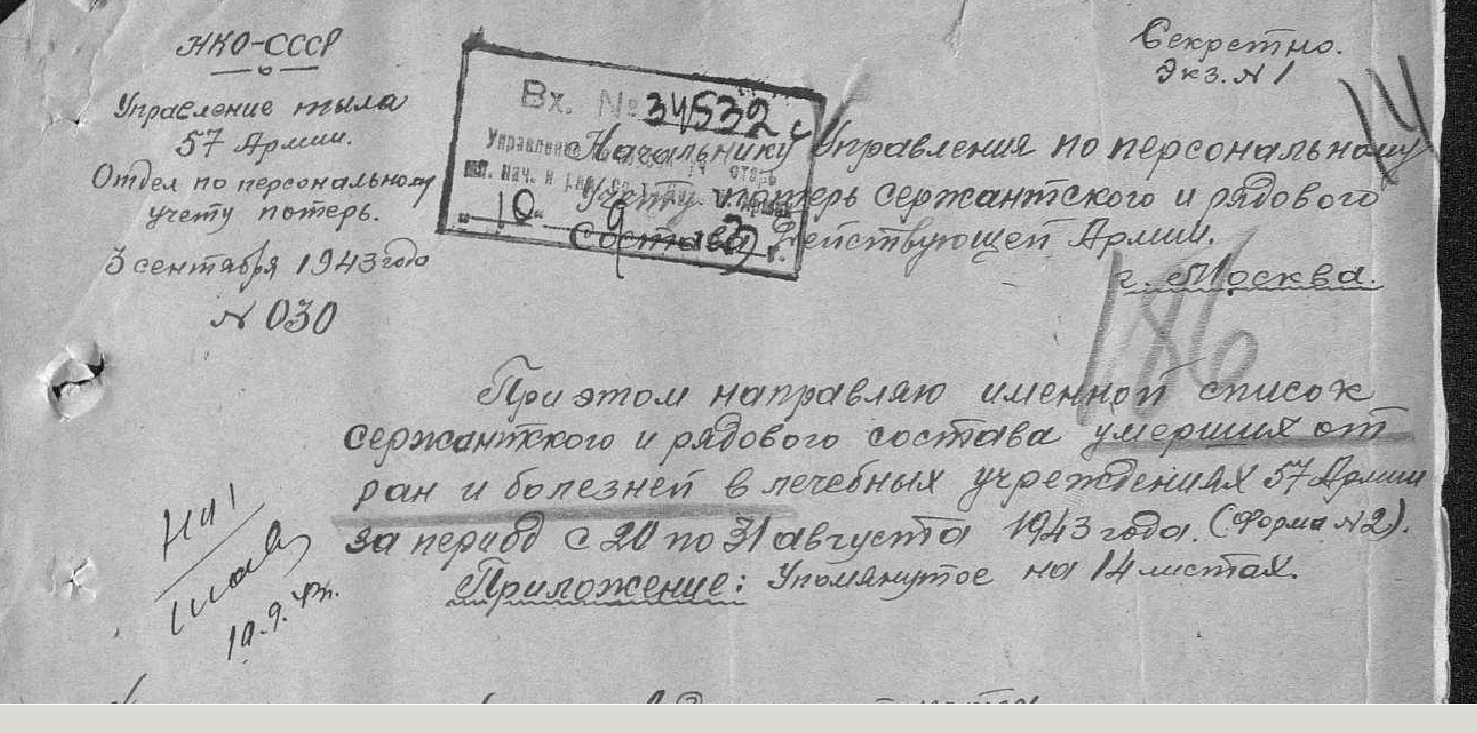 НКО-СССР
Управление тыла
57 Армии.
Отдел по персональному
учету потерь.
3 сентября 1943 года
№ 030
Вх. № 34532 с
10 9 г.
Секретно.
Экз. № 1
Начальнику Управления по персональному
учету потерь сержантского и рядового
состава Действующей Армии.
г. Москва.
186
При этом направляю именной список
сержантского и рядового состава умерших от
ран и болезней в лечебных учреждениях 57 Армии
за период с 20 по 31 августа 1943 года. (Форма № 2).
Приложение: Упомянутое на 14 листах.
10.9.43г.